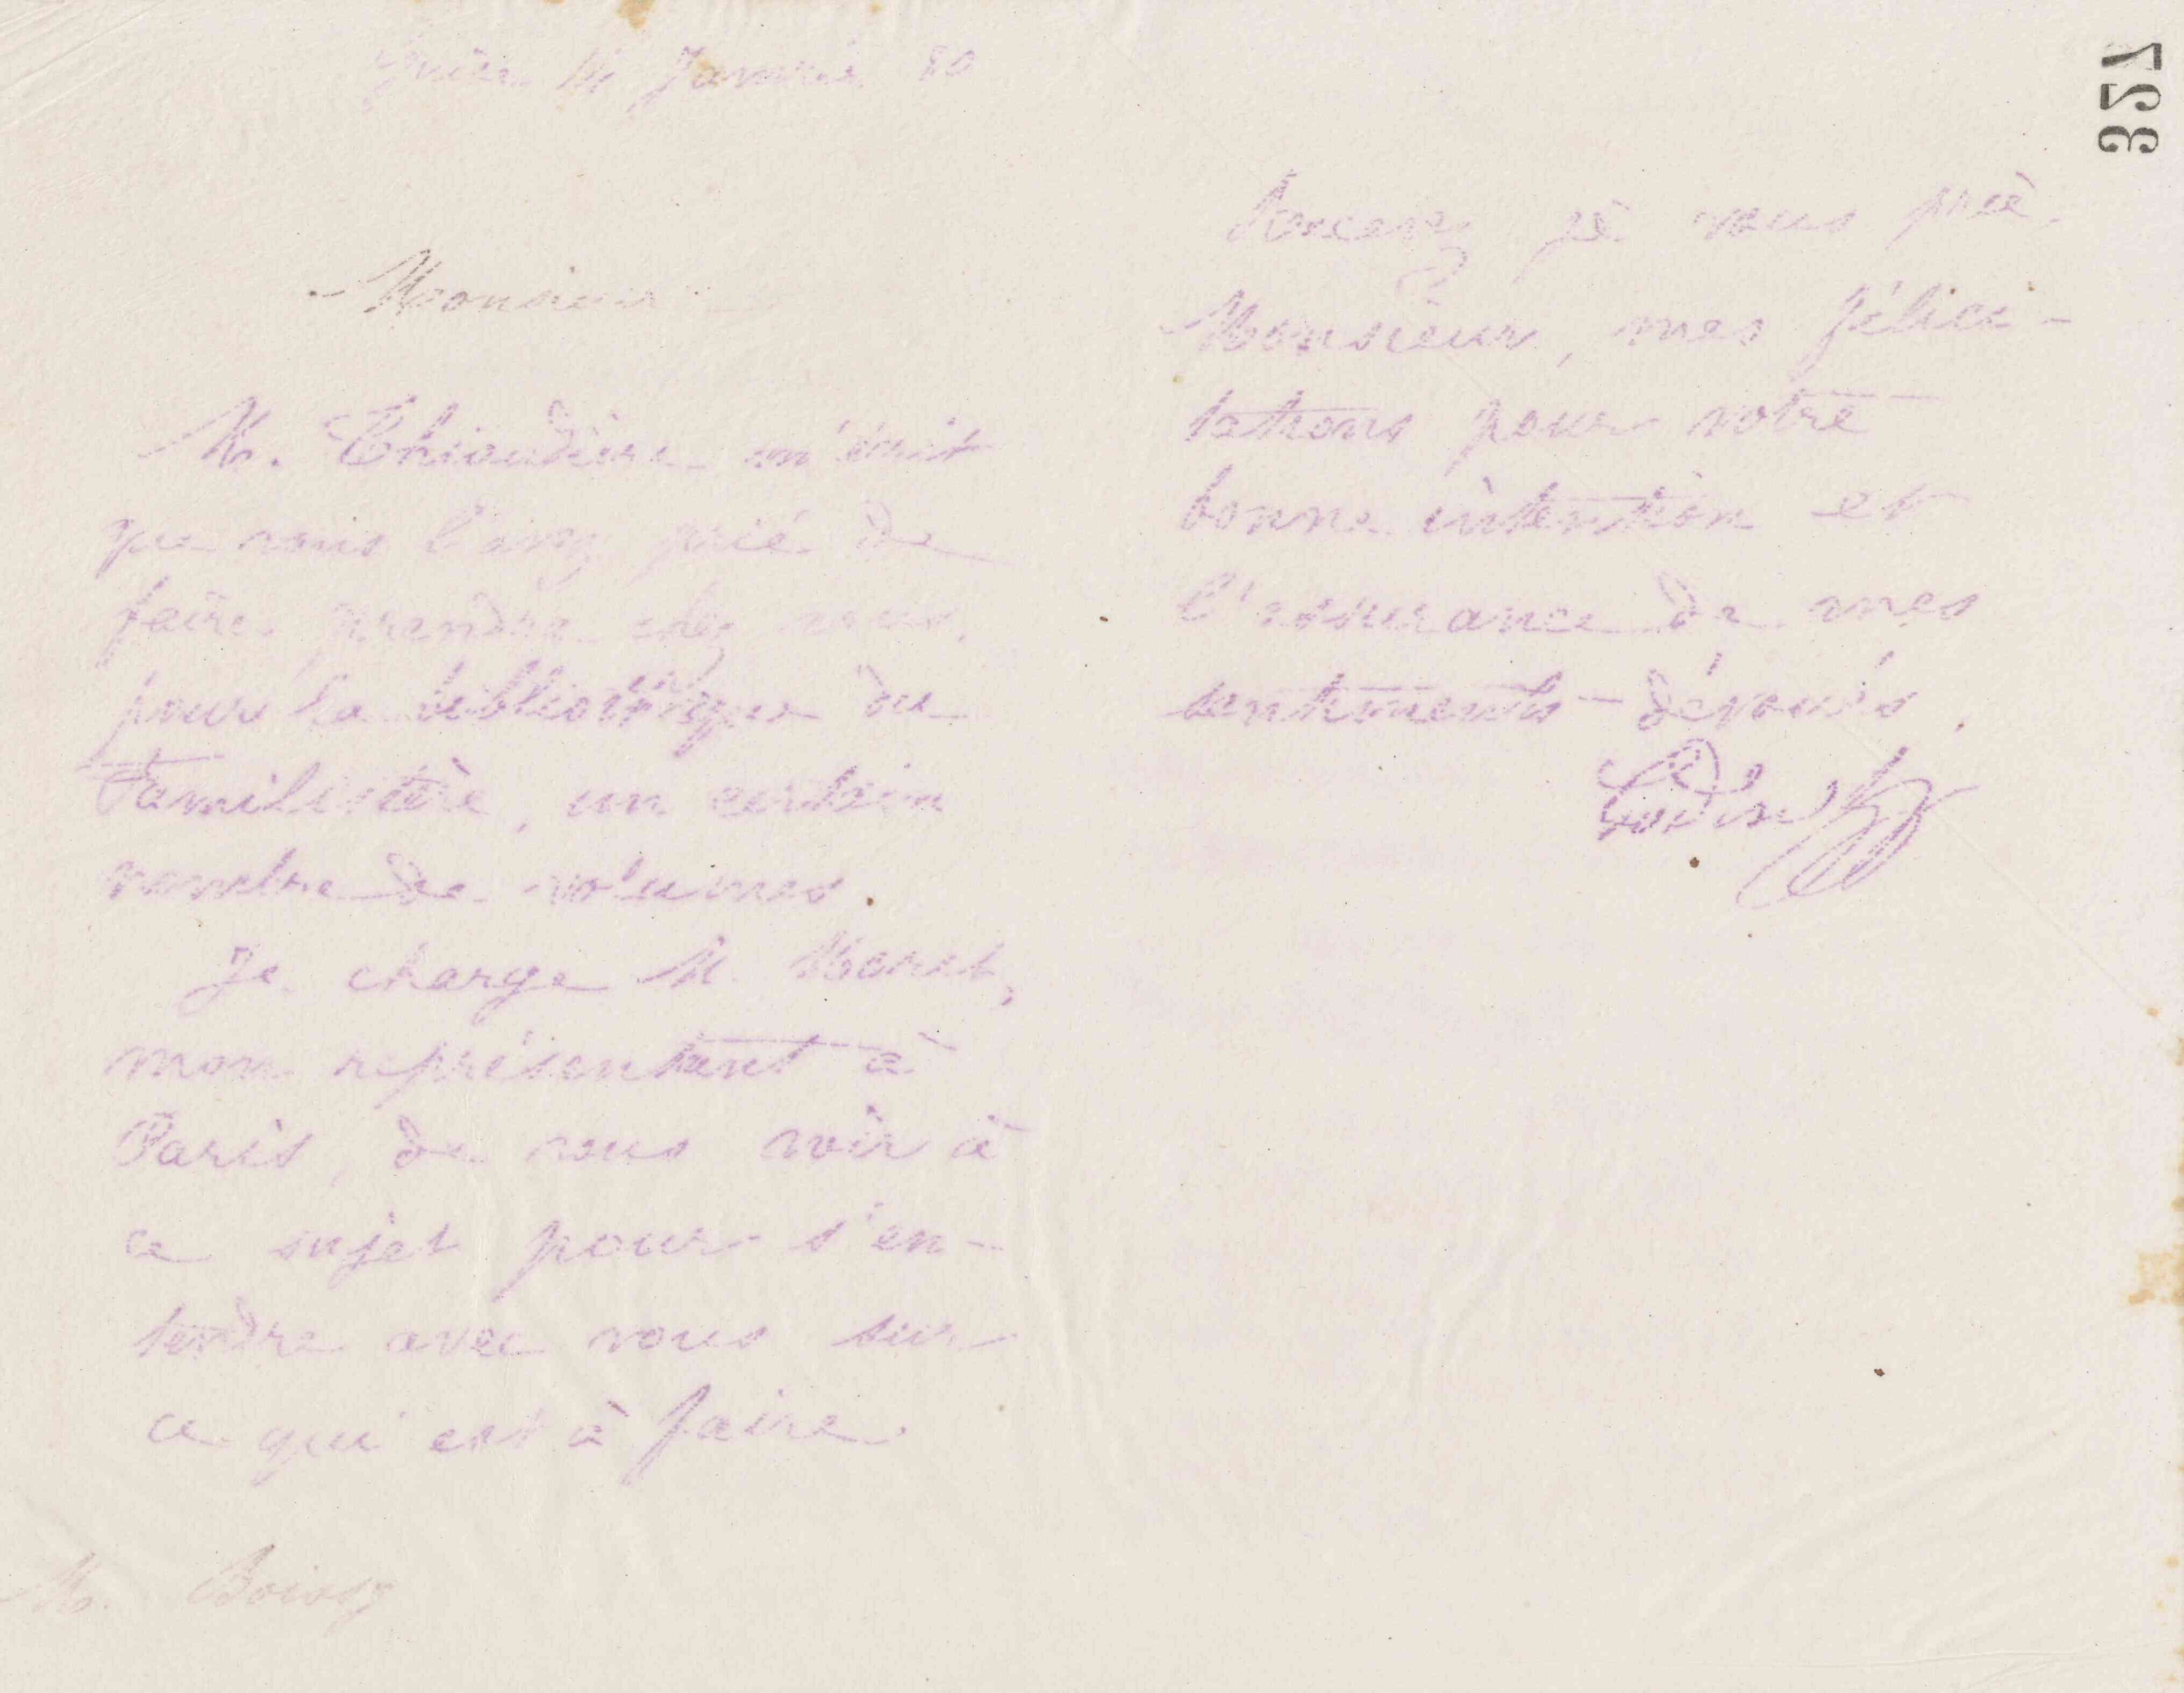 Guise 14 Janvier 80
Monsieur
M. Thiaudière m'écrit
que vous l'avez prié de
faire prendre chez vous,
pour la bibliothèque du
Familistère, un certain
nombre de volumes.
Je charge M. Moret,
mon représentant à
Paris, de vous voir à
ce sujet pour s'en-
tendre avec vous sur
ce qui est à faire.
M. Boissy
je vous prie,
Monsieur, mes félici-
tations pour votre
bonne intention et
l'assurance de mes
sentiments dévoués.
Godin
322